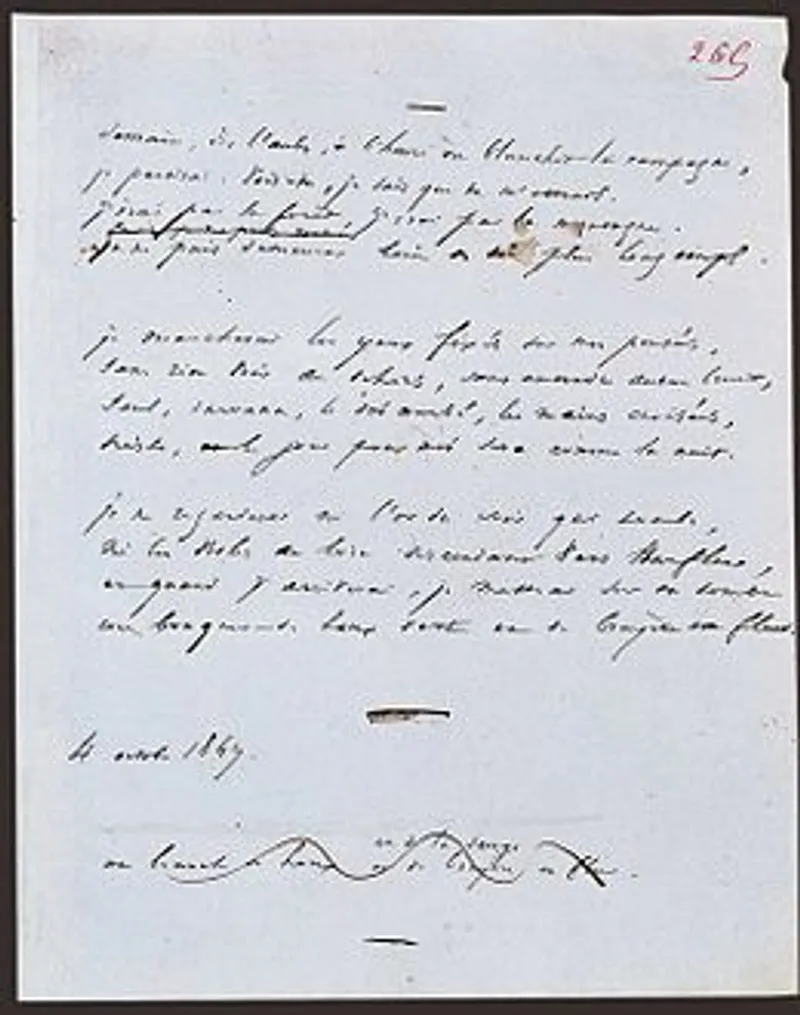 demain, dès l'aube, à l'heure où blanchit la campagne,
je partirai. Vois-tu, je sais que tu m'attends.
j'irai par la forêt, j'irai par la montagne.
je ne puis demeurer loin de toi plus longtemps.
je marcherai les yeux fixés sur mes pensées,
sans rien voir au dehors, sans entendre aucun bruit,
seul, inconnu, le dos courbé, les mains croisées,
triste, et le jour pour moi sera comme la nuit.
je ne regarderai ni l'or du soir qui tombe,
ni les voiles au loin descendant vers Harfleur,
et quand j'arriverai, je mettrai sur ta tombe
un bouquet de houx vert et de bruyère en fleur.
4 octobre 1847.
un bouquet de houx et de bruyère en fleur.